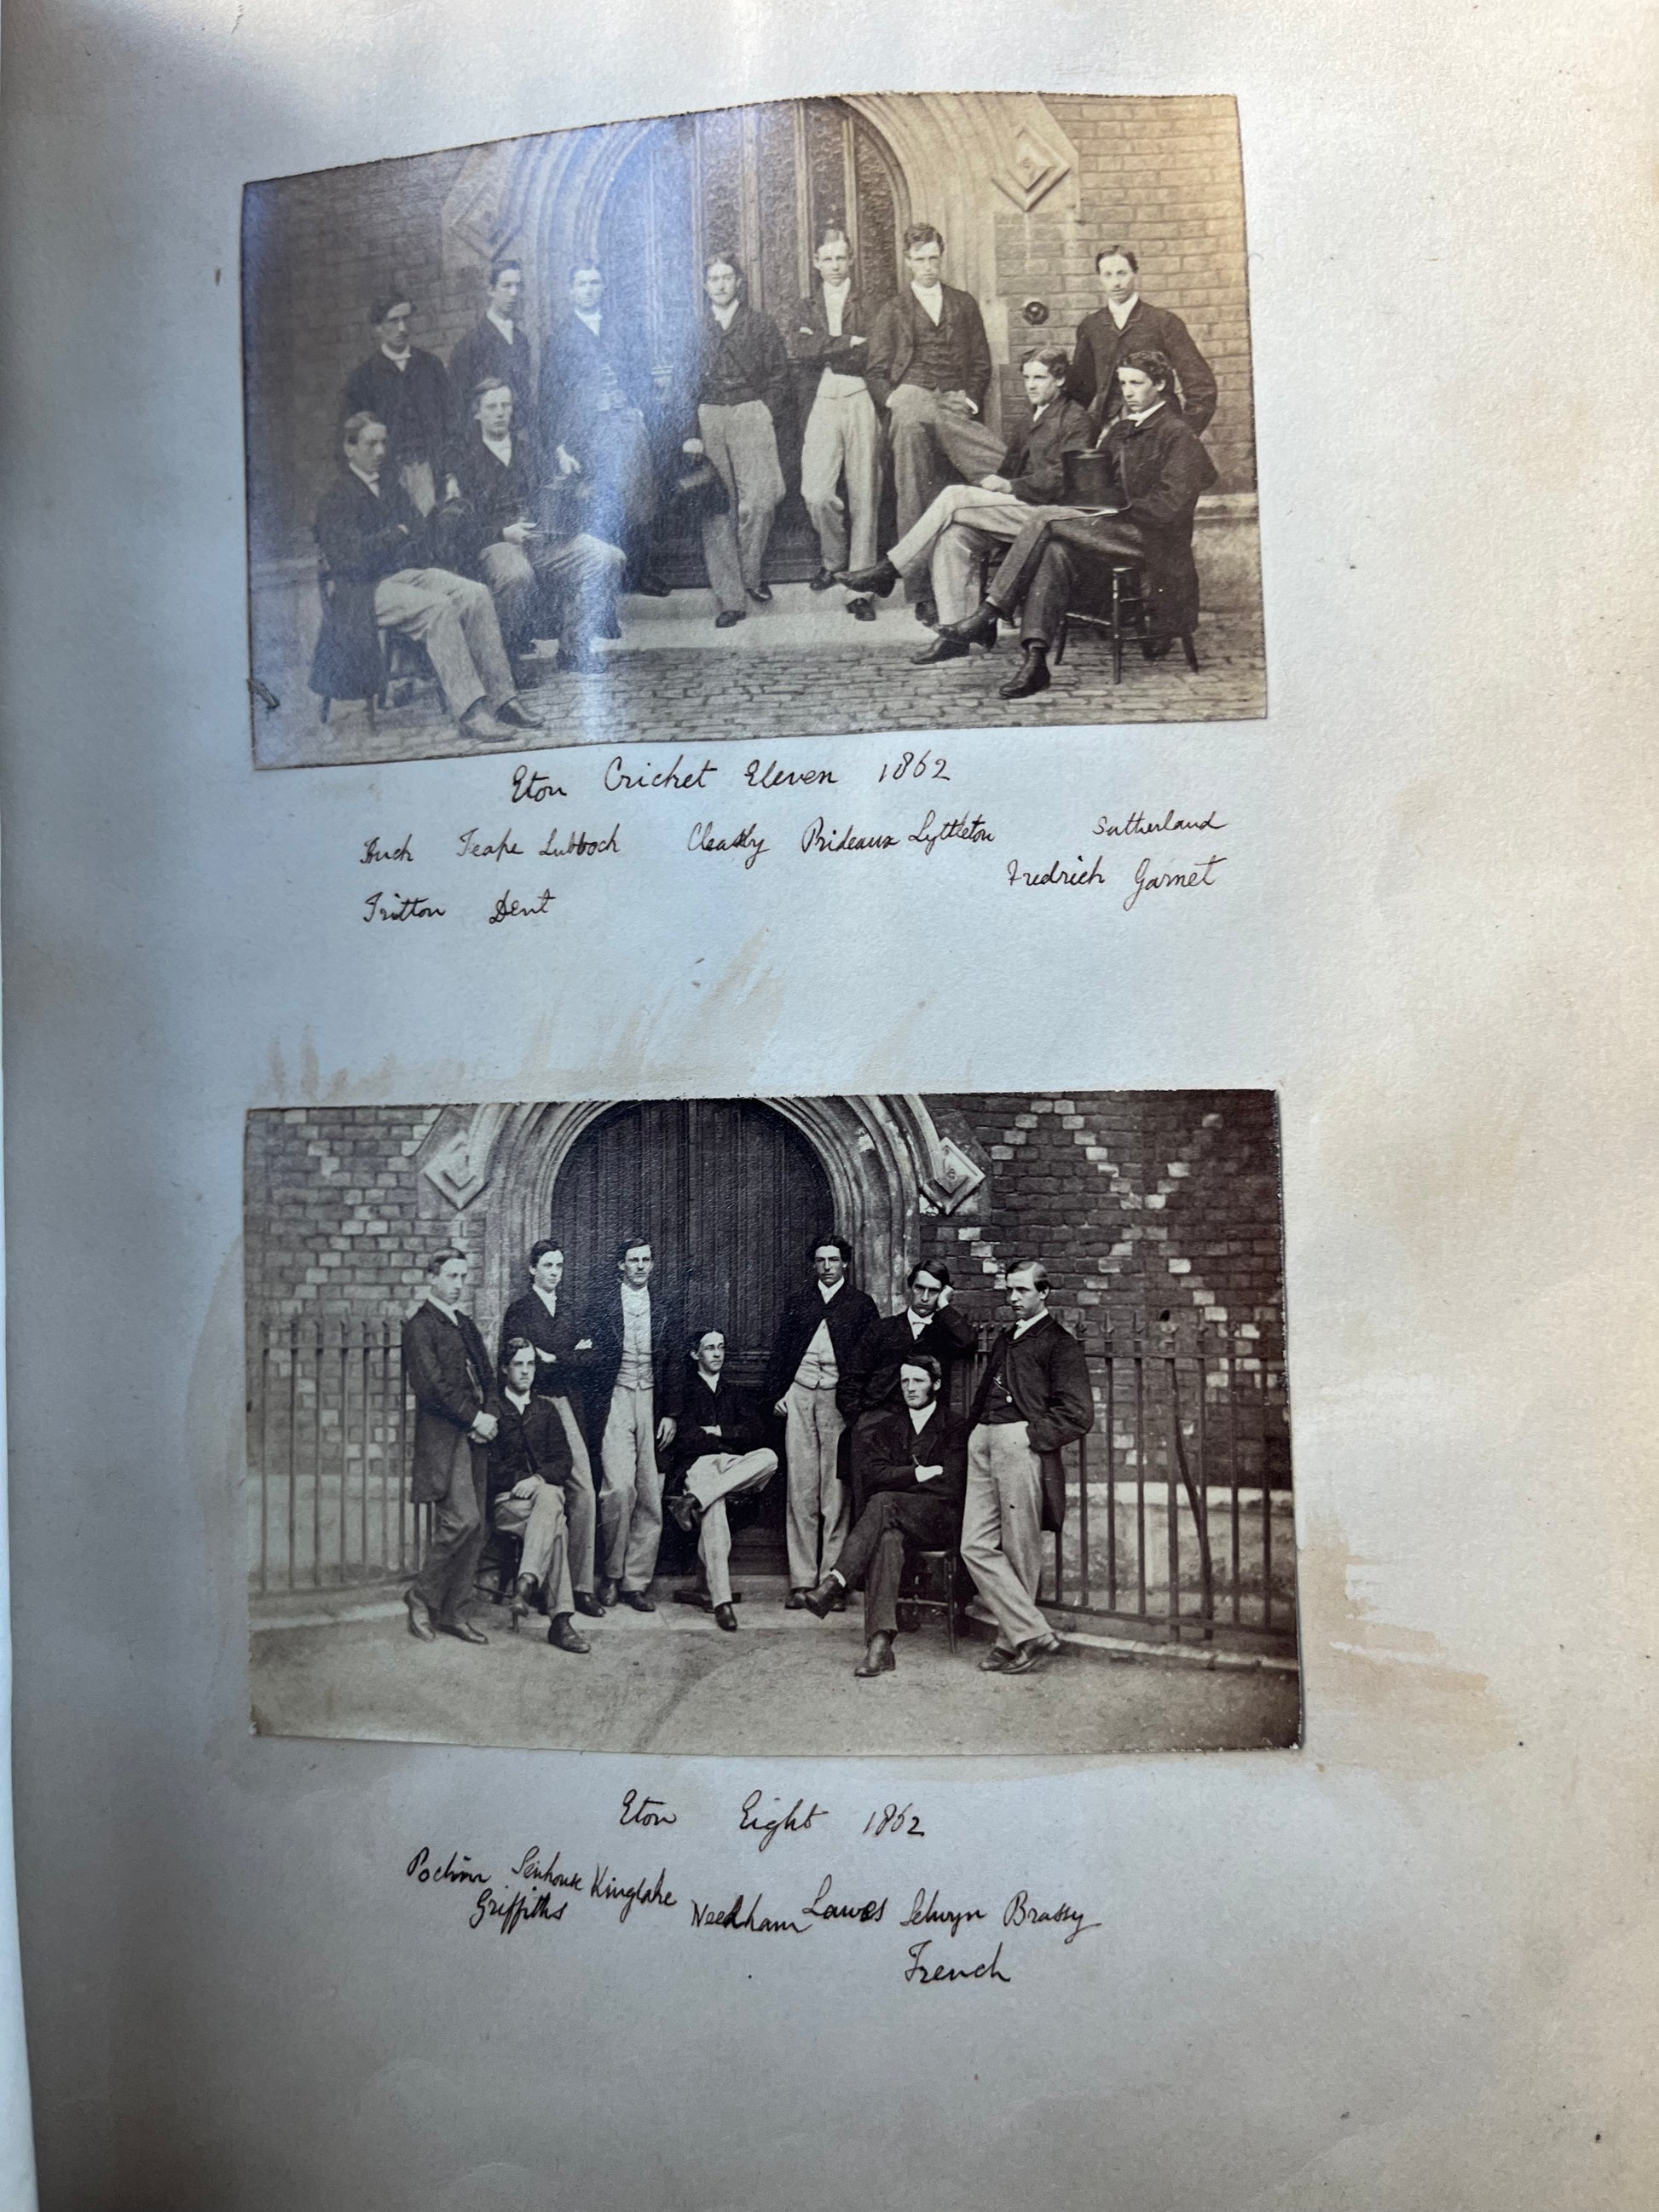 Eton Cricket Eleven 1862
Buck Teape Lubbock Cleasby Prideaux Lyttleton Sutherland
Fredrich Garnet
Tritton Dent
Eton Eight 1862
Pochin Senhouse Kinglake Needham Lawes Selwyn Brassy
Griffiths
French